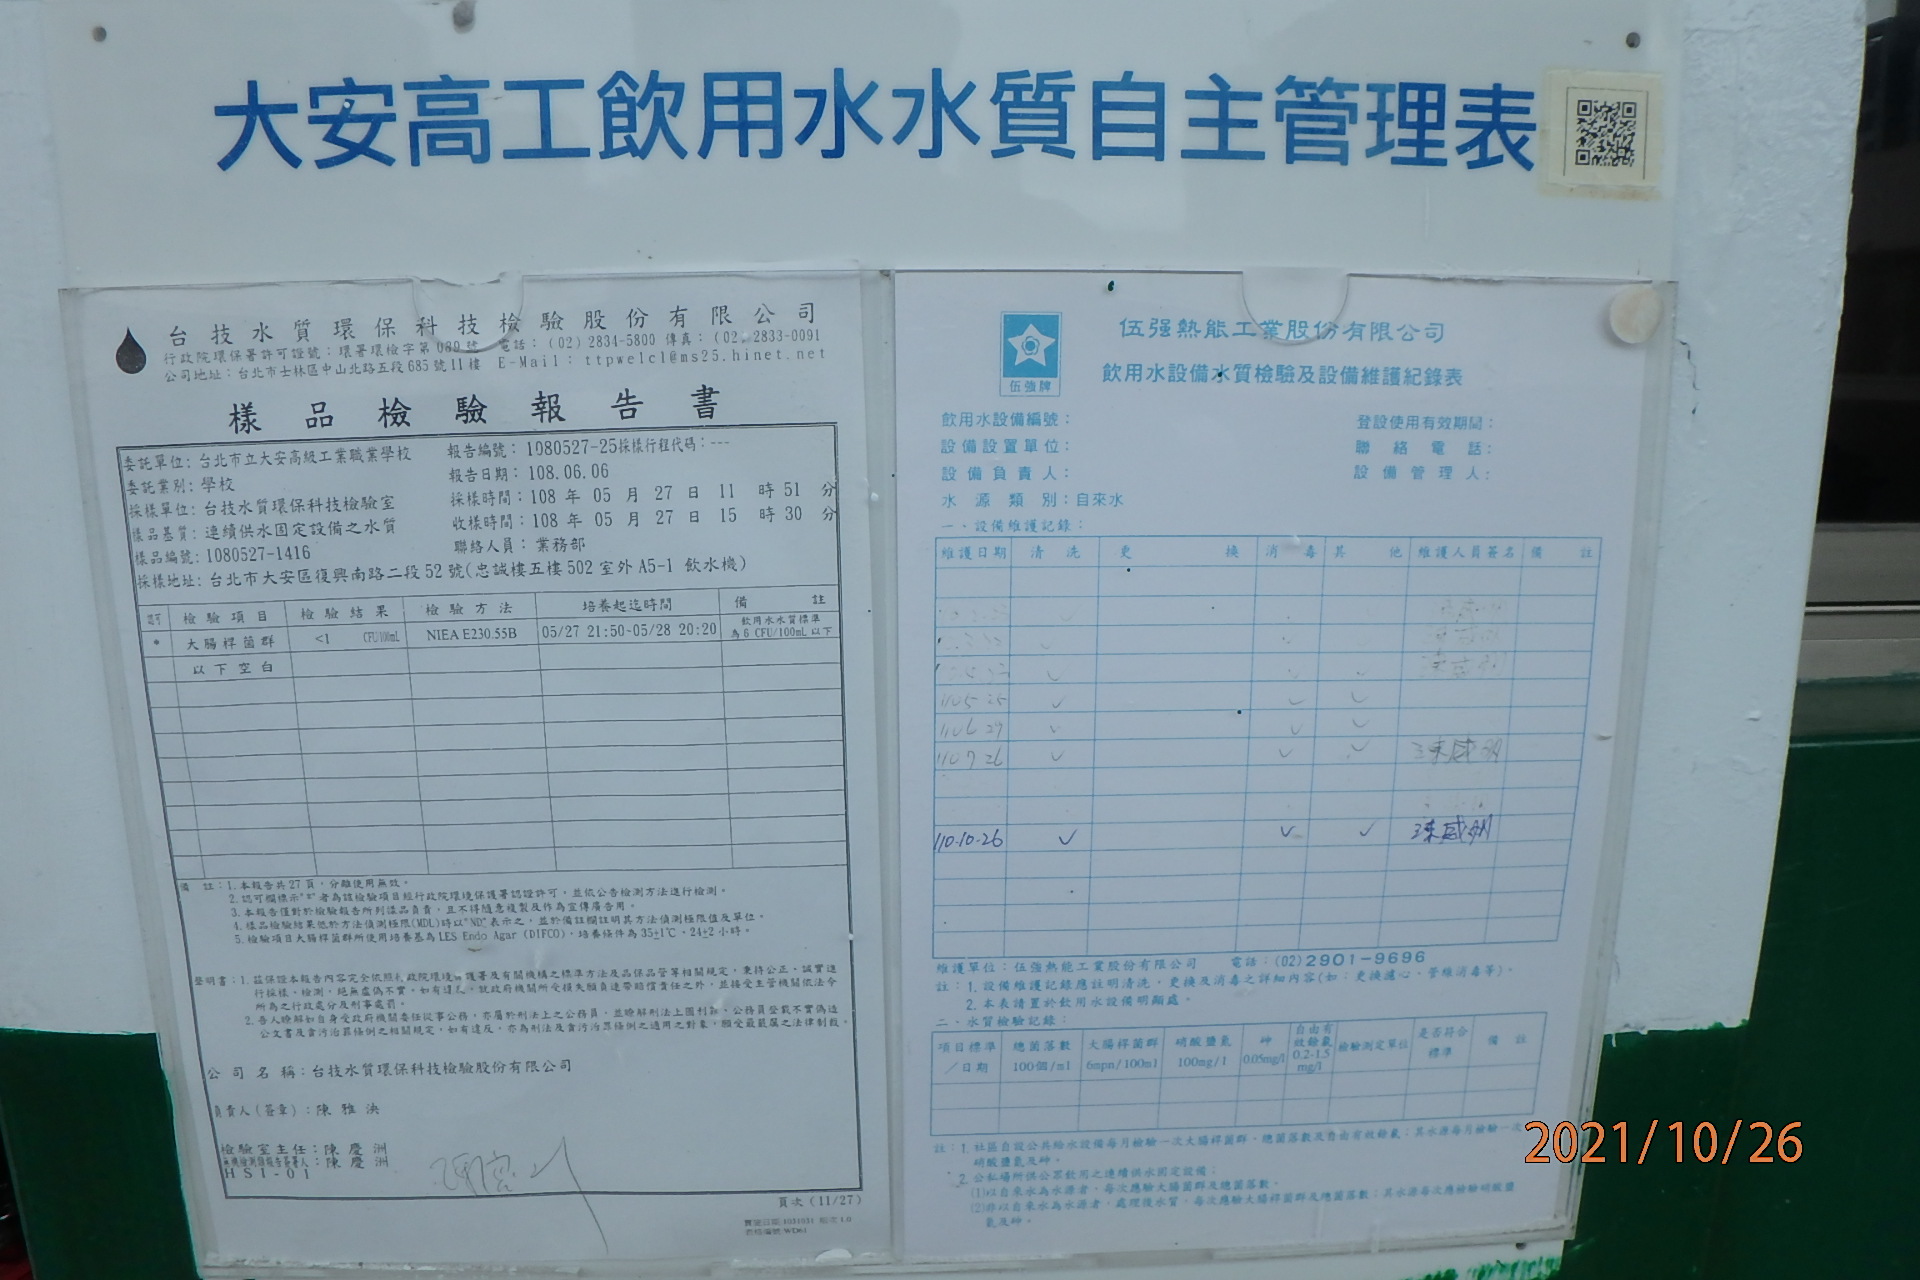 大安高工飲用水水質自主管理表
台技水質環保科技檢驗股份有限公司
行政院環保署許可證號：環署環檢字第 080 號 電話：(02) 2834-5800 傳真：(02) 2833-0091
公司地址：台北市士林區中山北路五段 685 號 11 樓 E-Mail：ttpwelcl@ms25.hinet.net
樣品檢驗報告書
委託單位：台北市立大安高級工業職業學校 報告編號：1080527-25 採樣行程代碼：---
委託業別：學校 報告日期：108.06.06
採樣單位：台技水質環保科技檢驗室 採樣時間：108 年 05 月 27 日 11 時 51 分
樣品基質：連續供水固定設備之水質 收樣時間：108 年 05 月 27 日 15 時 30 分
樣品編號：1080527-1416 聯絡人員：業務部
採樣地址：台北市大安區復興南路二段 52 號(忠誠樓五樓 502 室外 A5-1 飲水機)
認可 檢驗項目 檢驗結果 檢驗方法 培養起迄時間 備註
* 大腸桿菌群 <1 CFU/100mL NIEA E230.55B 05/27 21:50~05/28 20:20 飲用水水質標準為 6 CFU/100mL 以下
以下空白
備 註：1.本報告共 27 頁，分離使用無效。
2.認可欄標示"*"者為該檢驗項目經行政院環境保護署認證許可，並依公告檢測方法進行檢測。
3.本報告僅對於檢驗報告所列樣品負責，且不得隨意複製及作為宣傳廣告用。
4.樣品檢驗結果低於方法偵測極限(MDL)時以"ND"表示之，並於備註欄註明其方法偵測極限值及單位。
5.檢驗項目大腸桿菌群所使用培養基為 LES Endo Agar (DIFCO)，培養條件為 35±1℃，24±2 小時。
聲明書：1.茲保證本報告內容完全依照行政院環境保護署及有關機構之標準方法及品保品管等相關規定，秉持公正、誠實進
行採樣、檢測，絕無虛偽不實，如有違反，就政府機關所受損失願負連帶賠償責任之外，並接受主管機關依法令
所為之行政處分及刑事處罰。
2.吾人瞭解如自身受政府機關委任從事公務，亦屬於刑法上之公務員，並瞭解刑法上圖利罪、公務員登載不實偽造
公文書及貪污治罪條例之相關規定，如有違反，亦為刑法及貪污治罪條例之適用之對象，願受最嚴厲之法律制裁。
公司名稱：台技水質環保科技檢驗股份有限公司
負責人(簽章)：陳雅泱
檢驗室主任：陳慶洲
無機檢測類報告簽署人：陳慶洲
HSI-01
頁次 (11/27)
伍強牌
伍强熱能工業股份有限公司
飲用水設備水質檢驗及設備維護紀錄表
飲用水設備編號： 登設使用有效期間：
設備設置單位： 聯絡電話：
設備負責人： 設備管理人：
水源類別：自來水
一、設備維護記錄：
維護日期 清洗 更換 消毒 其他 維護人員簽名 備註
110 5 25 ✓ ✓ ✓
110 6 29 ✓ ✓ ✓
110 7 26 ✓ ✓ ✓ 陳威州
110.10.26 ✓ ✓ ✓ 陳威州
維護單位：伍強熱能工業股份有限公司 電話：(02)2901-9696
註：1.設備維護記錄應註明清洗、更換及消毒之詳細內容(如：更換濾心、管線消毒等)。
2.本表請置於飲用水設備明顯處。
二、水質檢驗記錄：
項目標準／日期 總菌落數 100個/ml 大腸桿菌群 6mpn/100ml 硝酸鹽氮 100mg/l 砷 0.05mg/l 自由有效餘氯 0.2-1.5 mg/l 檢驗測定單位 是否符合標準 備註
註：1.社區自設公共給水設備每月檢驗一次大腸桿菌群、總菌落數及自由有效餘氯；其水源每月檢驗一次
硝酸鹽氮及砷。
2.公私場所供公眾飲用之連續供水固定設備：
(1)以自來水為水源者，每次應驗大腸桿菌群及總菌落數。
(2)非以自來水為水源者，處理後水質，每次應驗大腸桿菌群及總菌落數；其水源每次應檢驗硝酸鹽
氮及砷。
2021/10/26